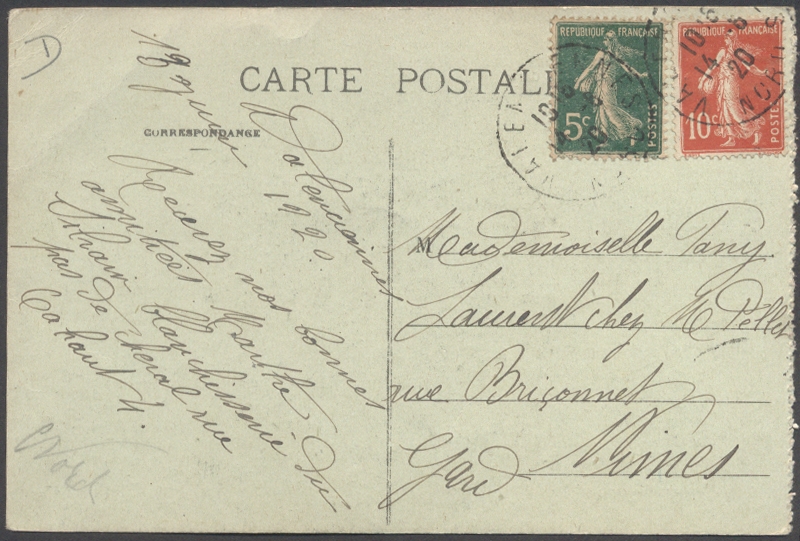 CARTE POSTALE
CORRESPONDANCE
Valenciennes
1920.
Recevez nos bonnes
amitiés Marthe
blanchisserie du
pas de cheval rue
Cahaut 4.
Nord
RÉPUBLIQUE FRANÇAISE
5c
POSTES
RÉPUBLIQUE FRANÇAISE
10c
POSTES
14
20
NORD
Mademoiselle Fany
Laurent chez M Pellet
rue Briçonnet
Nimes
Gard